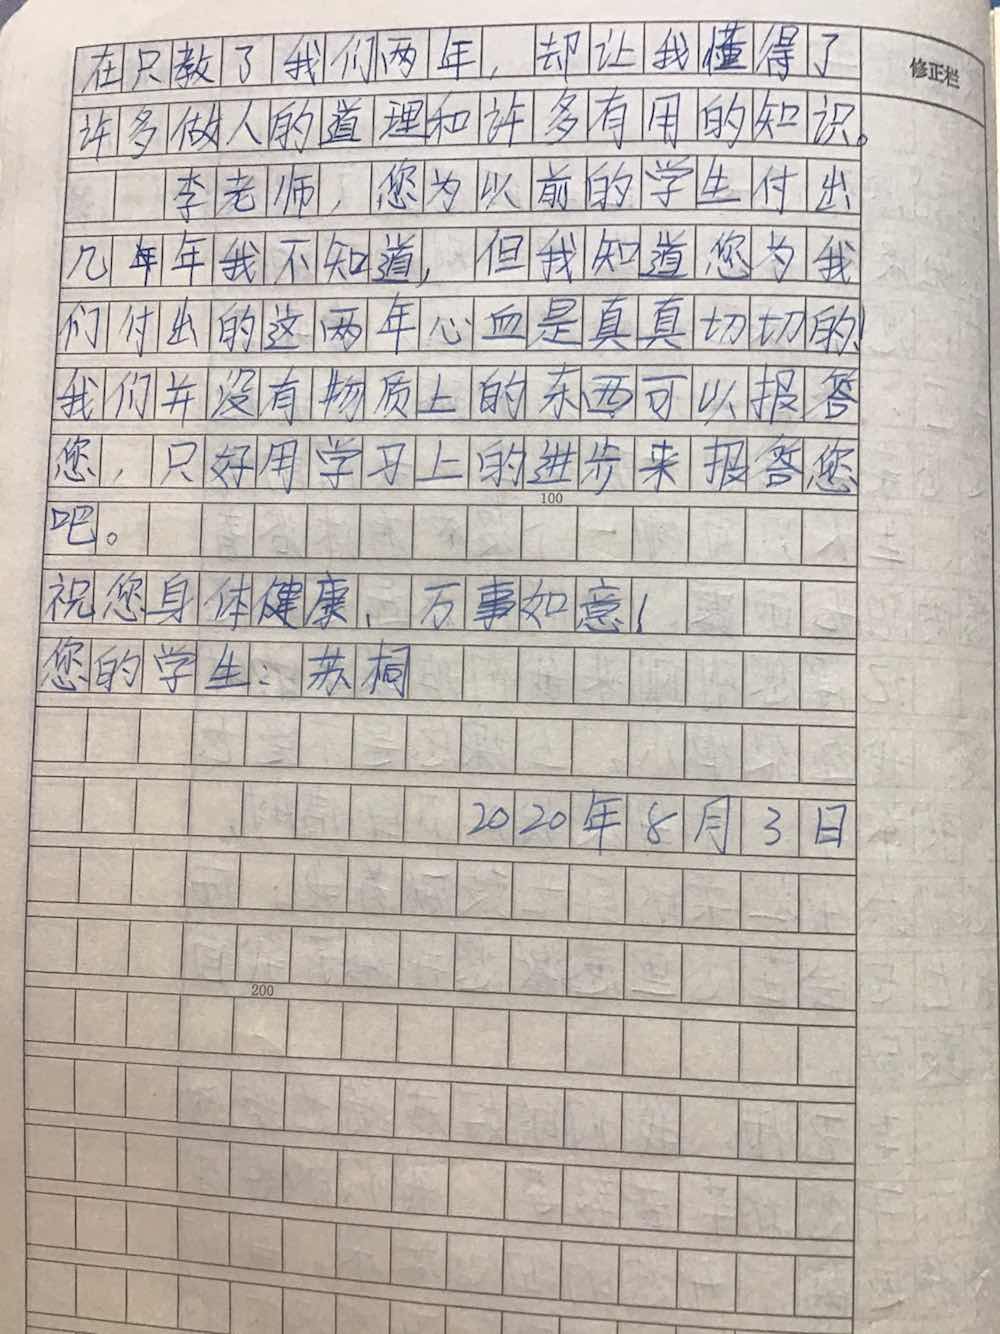 在只教了我们两年，却让我懂得了
修正栏
许多做人的道理和许多有用的知识。
李老师，您为以前的学生付出
几年年我不知道，但我知道您为我
们付出的这两年心血是真真切切的！
我们并没有物质上的东西可以报答
您，只好用学习上的进步来报答您
100
吧。
祝您身体健康，万事如意！
您的学生：苏桐
2020年8月3日
200